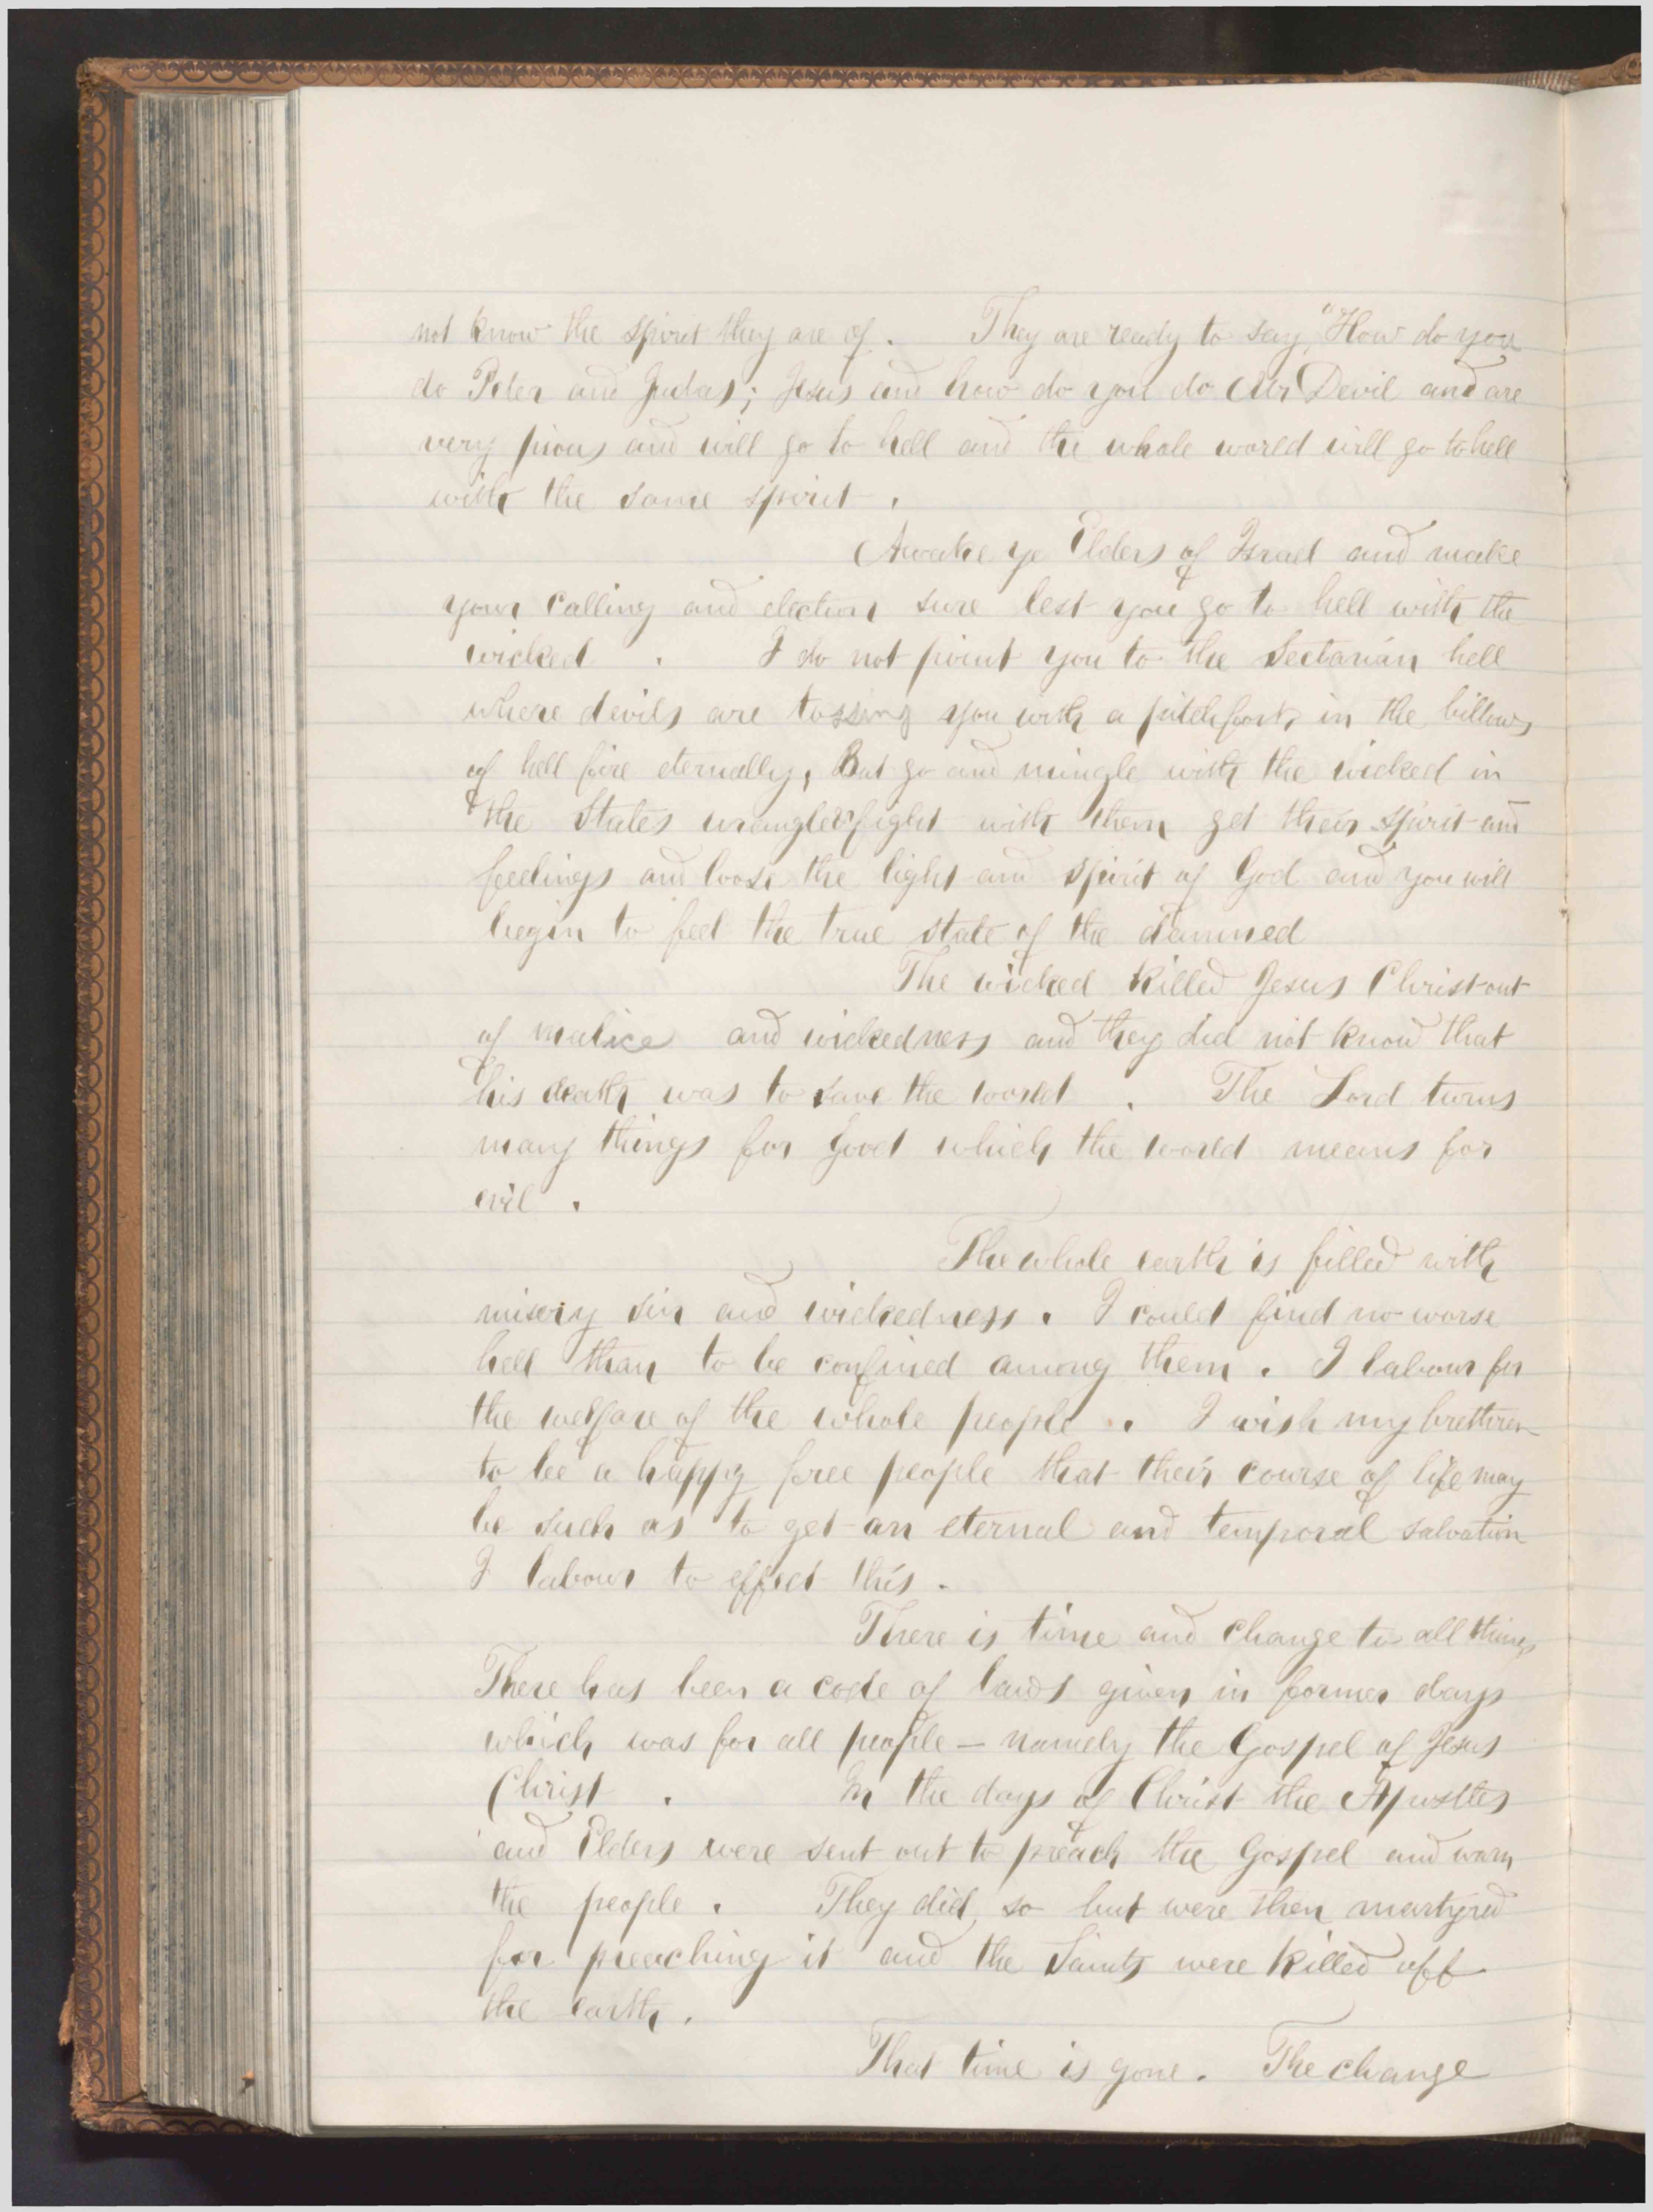 not know the spirit they are of. They are ready to say, "How do you
do Peter and Judas; Jesus and how do you do Mr Devil and are
very pious and will go to hell and the whole world will go to hell
with the same spirit.
Awake ye Elders of Israel and make
your calling and election sure lest you go to hell with the
wicked. I do not point you to the Sectarian hell
where devils are tossing you with a pitchfork in the billows
of hell fire eternally, But go and mingle with the wicked in
the States wrangle & fight with them get their spirit and
feelings and loose the light and spirit of God and you will
begin to feel the true state of the damned
The wicked killed Jesus Christ out
of malice and wickedness and they did not know that
his death was to save the world. The Lord turns
many things for good which the world means for
evil.
The whole earth is filled with
misery sin and wickedness. I could find no worse
hell than to be confined among them. I labour for
the welfare of the whole people.. I wish my brethren
to be a happy free people that their course of life may
be such as to get an eternal and temporal salvation
I labour to effect this.
There is time and change to all things
There has been a code of laws given in former days
which was for all people — namely the Gospel of Jesus
Christ. In the days of Christ the Apostles
and Elders were sent out to preach the Gospel and warn
the people. They did so but were then martyred
for preaching it and the Saints were killed off
the earth.
That time is gone. The change